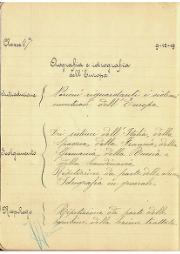 Classe 6ª
9-12-49
Orografia e idrografia
dell'Europa
Introduzione
Nozioni riguardanti i sistemi
montuosi dell'Europa.
Svolgimento
Dei sistemi dell'Italia, della
Spagna, della Francia, della
Germania, della Russia e
della Scandinavia.
Ripetizione da parte delle alunne
Idrografia in generale.
Riepilogo
Ripetizione da parte delle
della lezione trattata